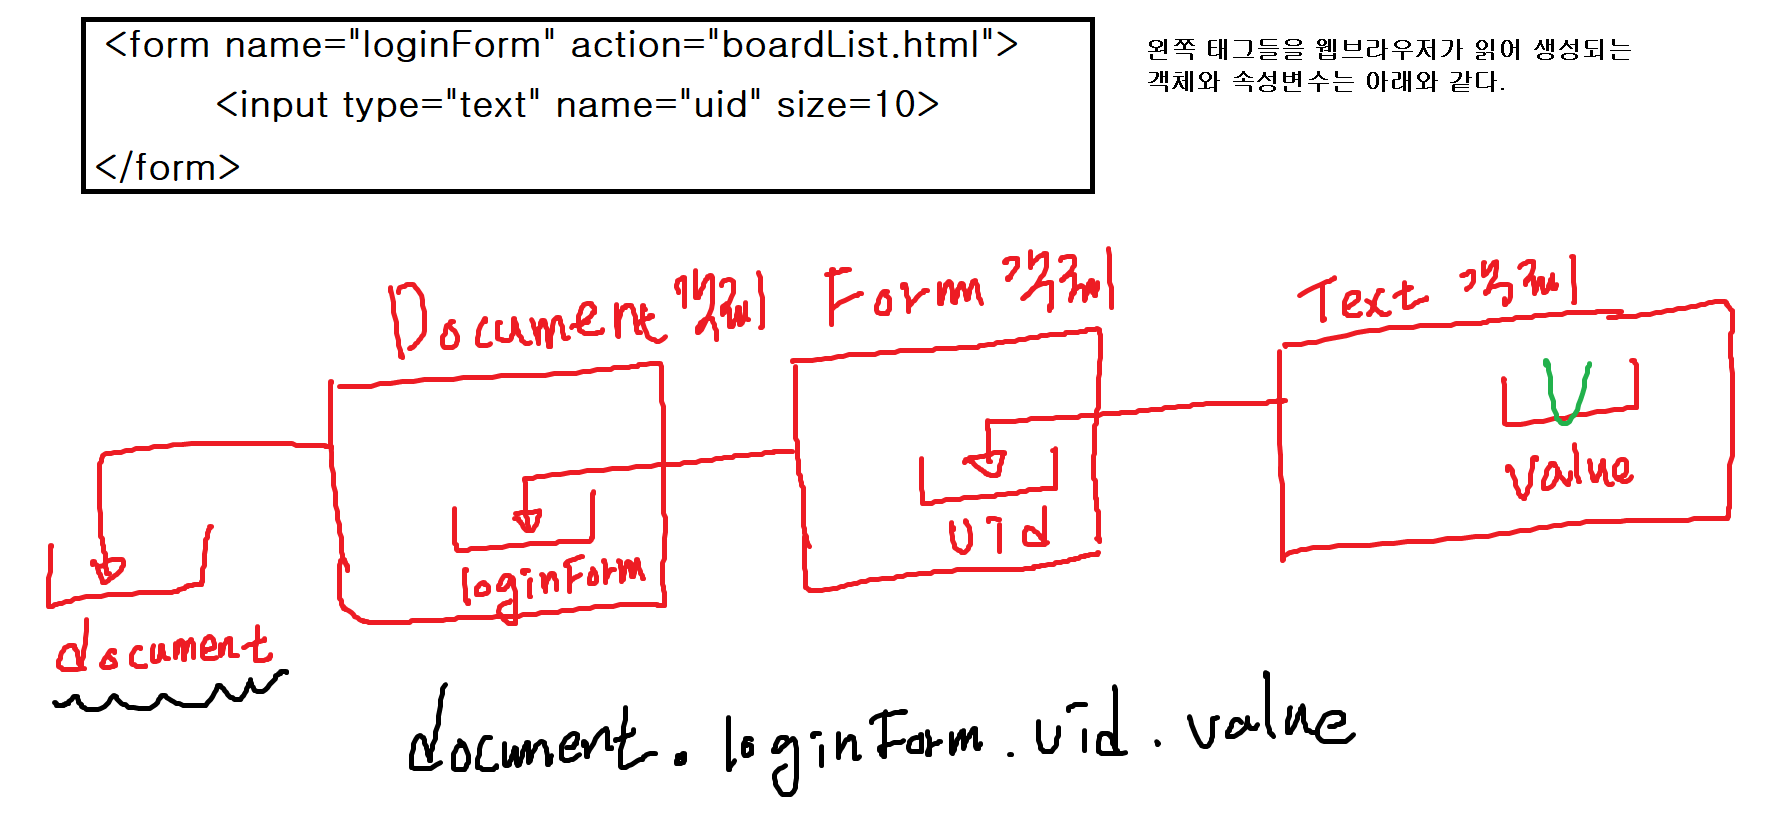 <form name="loginForm" action="boardList.html">
<input type="text" name="uid" size=10>
</form>
왼쪽 태그들을 웹브라우저가 읽어 생성되는
객체와 속성변수는 아래와 같다.
Document 객체
Form 객체
Text 객체
value
uid
loginForm
document
document.loginForm.uid.value